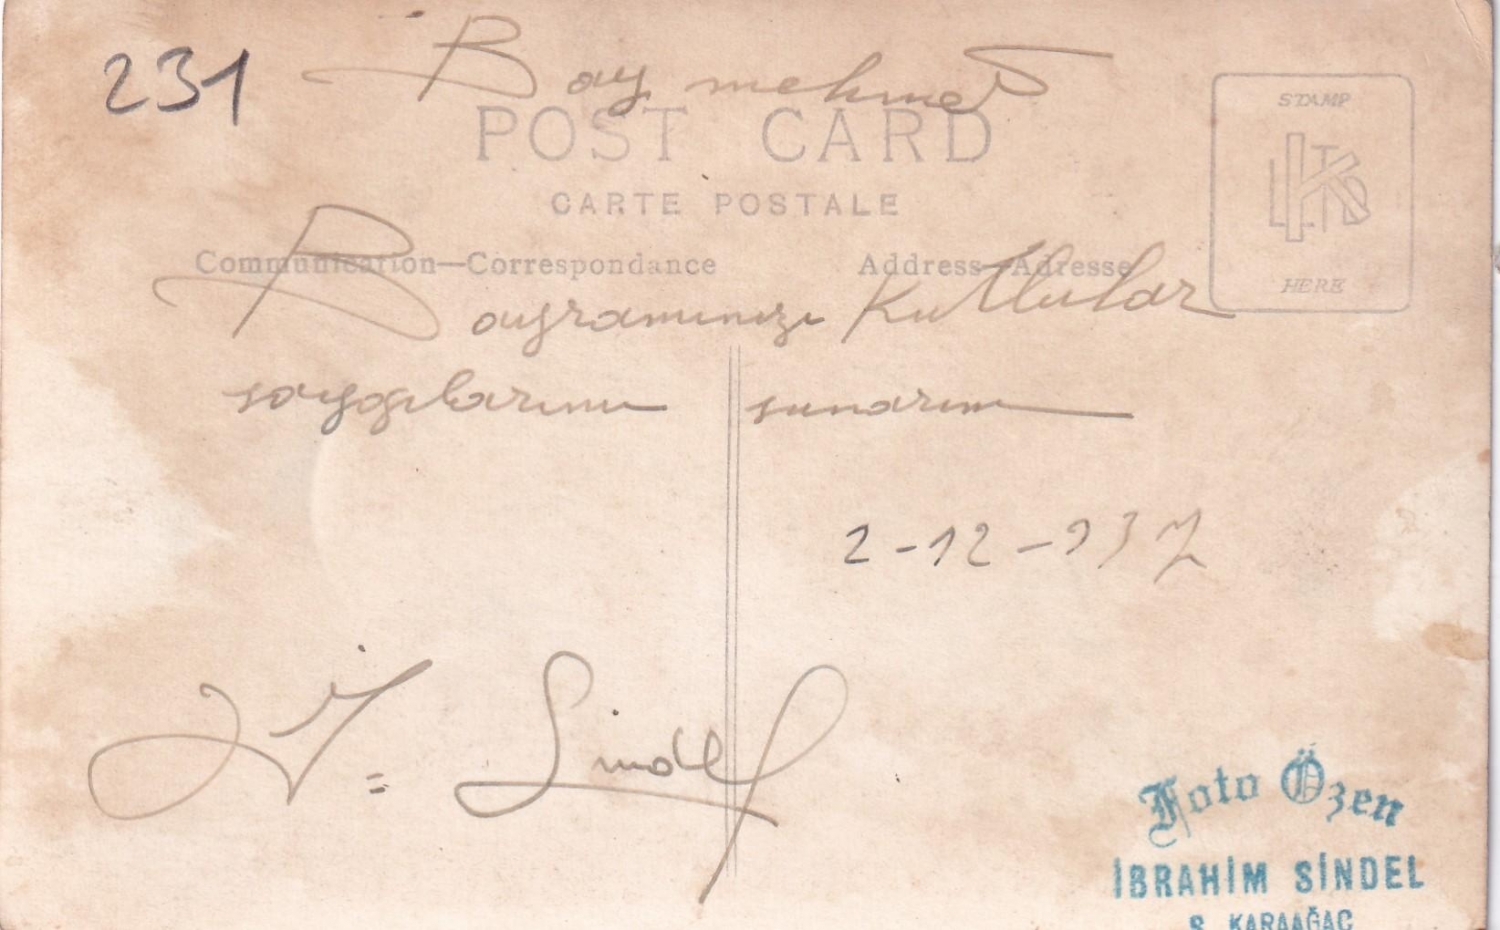 231
Bay mehmet
POST CARD
CARTE POSTALE
STAMP
LTD
HERE
Communication—Correspondance
Address—Adresse
Bayramınızı Kutlular
saygılarımı sunarım
2-12-937
İ= Sindel
Foto Özen
İBRAHİM SİNDEL
Ş. KARAAĞAÇ